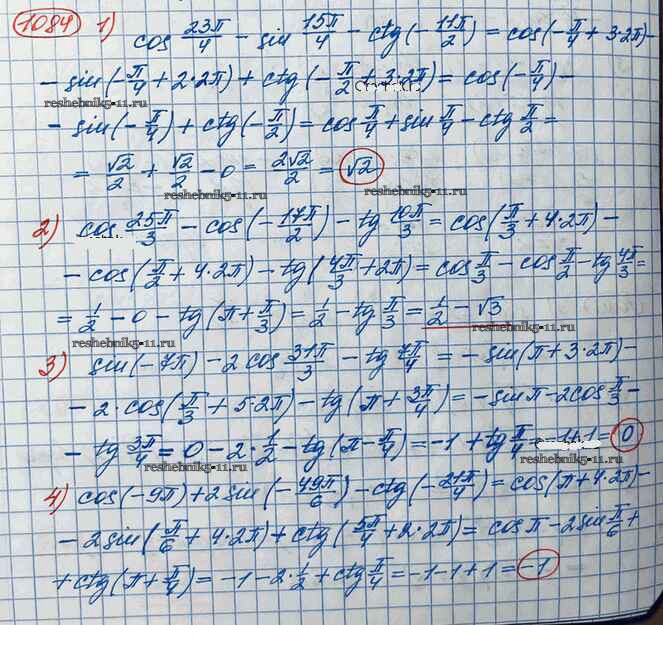 1084 1) cos 23π/4 - sin 15π/4 - ctg(-11π/2) = cos(-π/4 + 3·2π) -
- sin(-π/4 + 2·2π) + ctg(-π/2 + 3·2π) = cos(-π/4) -
reshebnik5-11.ru
- sin(-π/4) + ctg(-π/2) = cos π/4 + sin π/4 - ctg π/2 =
= √2/2 + √2/2 - 0 = 2√2/2 = √2
reshebnik5-11.ru
2) cos 25π/3 - cos(-17π/2) - tg 10π/3 = cos(π/3 + 4·2π) -
- cos(π/2 + 4·2π) - tg(4π/3 + 2π) = cos π/3 - cos π/2 - tg 4π/3 =
= 1/2 - 0 - tg(π + π/3) = 1/2 - tg π/3 = 1/2 - √3
reshebnik5-11.ru
reshebnik5-11.ru
3) sin(-7π) - 2 cos 31π/3 - tg 7π/4 = - sin(π + 3·2π) -
- 2·cos(π/3 + 5·2π) - tg(π + 3π/4) = - sin π - 2cos π/3 -
- tg 3π/4 = 0 - 2·1/2 - tg(π - π/4) = -1 + tg π/4 = -1+1 = 0
reshebnik5-11.ru
4) cos(-9π) + 2 sin(-49π/6) - ctg(-21π/4) = cos(π + 4·2π) -
- 2sin(π/6 + 4·2π) + ctg(5π/4 + 2·2π) = cos π - 2sin π/6 +
+ ctg(π + π/4) = -1 - 2·1/2 + ctg π/4 = -1 - 1 + 1 = -1
reshebnik5-11.ru